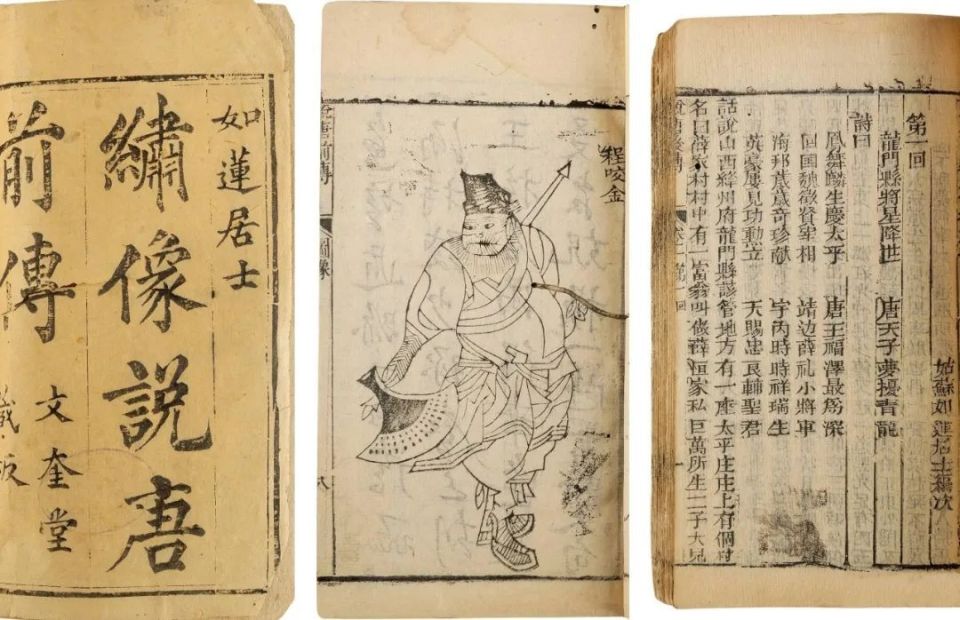 如蓮居士
繡像說唐
前傳
文奎堂
藏板
程咬金
說唐前傳
圖像
八
姑蘇如蓮居士編次
第一回
龍門縣將星降世 唐天子夢擾青龍
詩曰
鳳舞麟生慶太平 唐王福澤最為深
国魏徵賢宰相 靖边薛礼小將軍
海邦歲歲奇珍献 宇內時時祥瑞生
英豪屢見功勳立 天賜忠良輔聖君
話說山西絳州府龍門縣該管地方有一座太平庄庄上有個村
名曰薛家村村中有一富翁叫做薛恒家私巨萬所生二子大兒